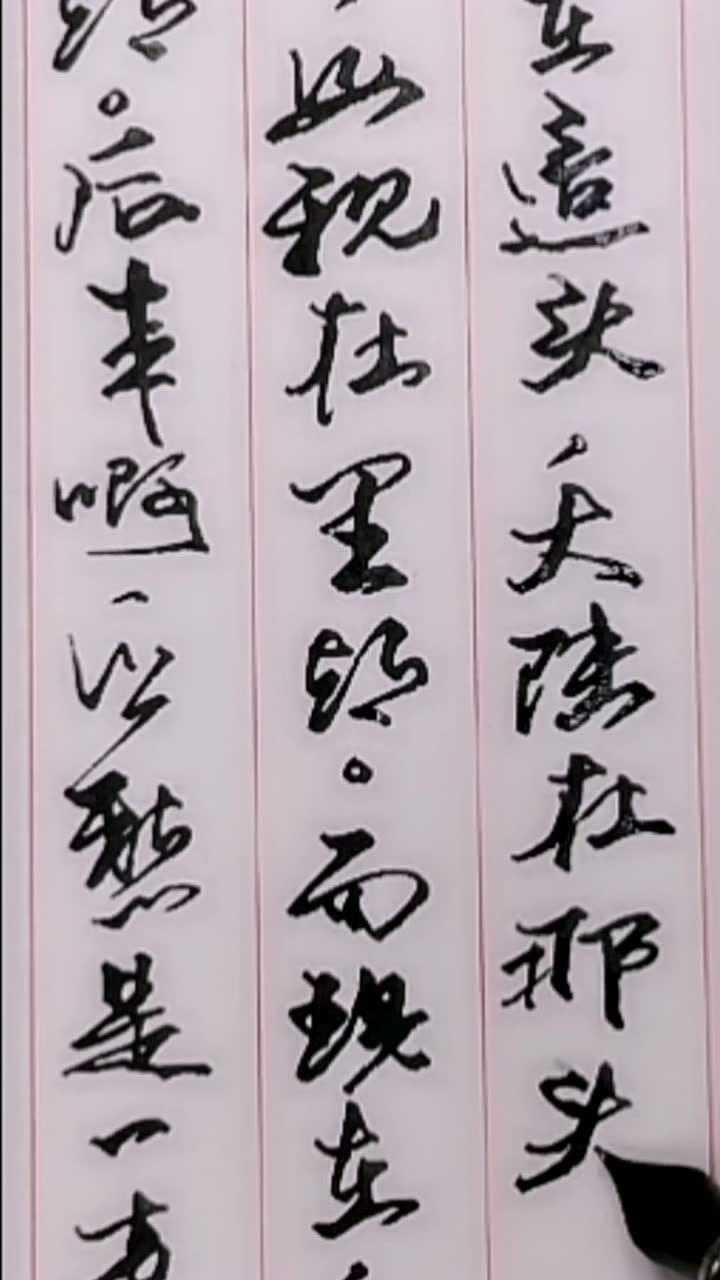 头。后来啊，乡愁是一方
，母亲在里头。而现在，
在這头，大陆在那头